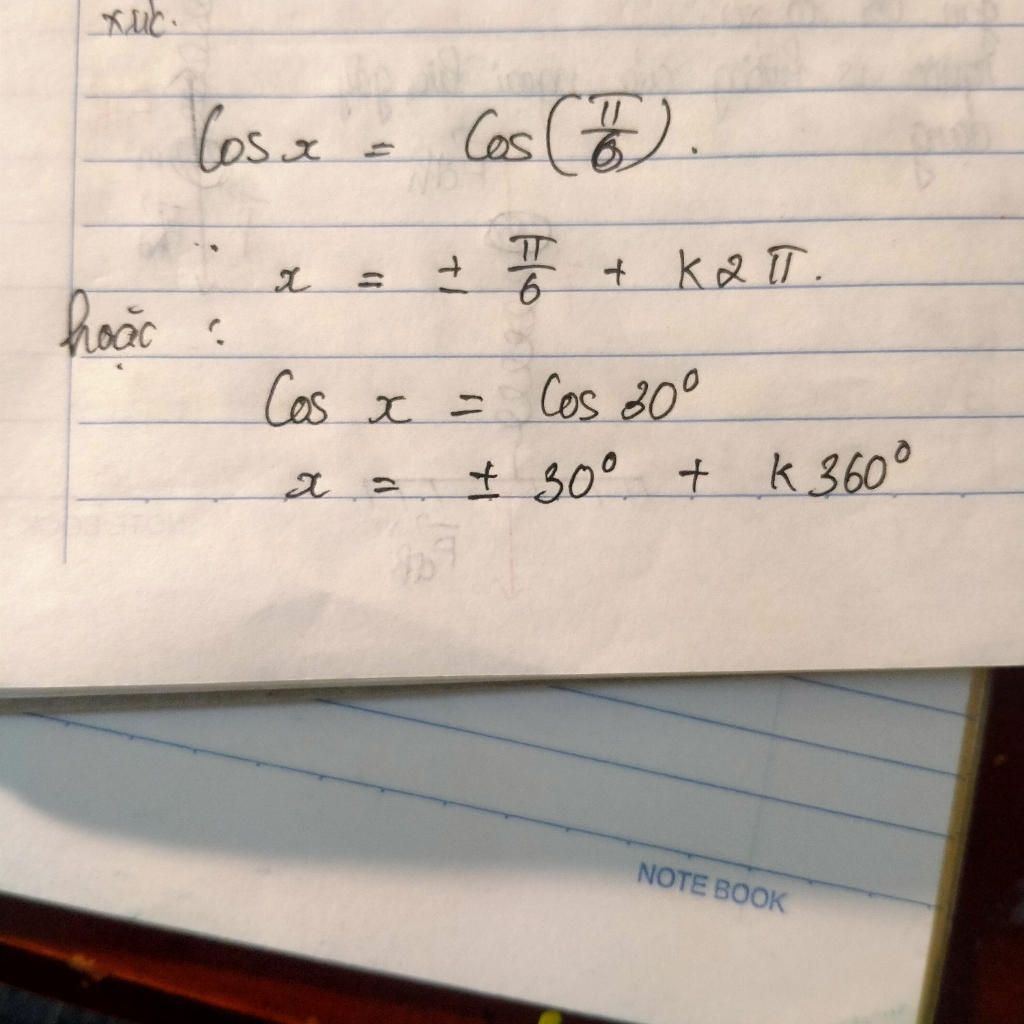 xúc.
Cos x = Cos(π/6).
x = ± π/6 + k2π.
hoặc :
Cos x = Cos 30⁰
x = ± 30⁰ + k 360⁰
NOTE BOOK